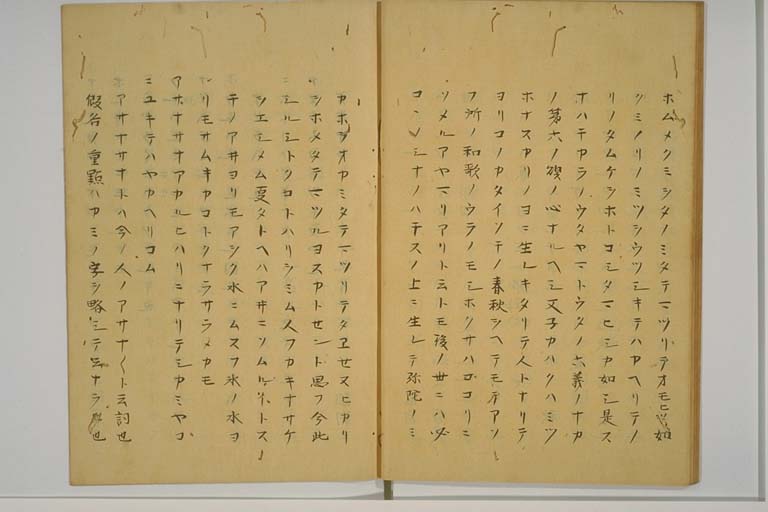 ホムメクミシタノミタテマツリテオモヒツ如
クミノリノミツシウツシキテハカヘリテノ
リノタムケシホトコシタマヒシカ如シ是ス
ナハチカラノウタヤマトウタノ六義ノナカ
ノ第六ノ頌ノ心ナルヘシ文子カハクハミツ
ホナスカリノヨニ生レキタリテ人トナリテ
ヨリコノカタイツテノ春秋シヘテモ
フ所ノ和歌ノウラノモシホクサハココリニ
ツメルアヤマリアリト云トモ後ノ世ニハ必
コンシナノハテスノ上ニ生レテ弥陀ノミ
カホヲオカミタテマツリテタヱセスヒカリ
ヲシホメタテマツルヨスカトセント思フ今此
ニシルシトクコトハリシミム人フカキナサケ
ツエシメム夏タトヘハアヰニソムルイトス
テノアヰヨリモアシク水ニムスフ氷ノ水ヨ
リモサムキカコトクナラサラメカモ
アサナサナアカルヒハリニナリテシカミヤコ
ニユキテハヤカヘリコム
アサナサナトハ今ノ人ノアサナ〱ト云詞也
假名ノ重點ハカミノ字シ略シテ云ナラ也